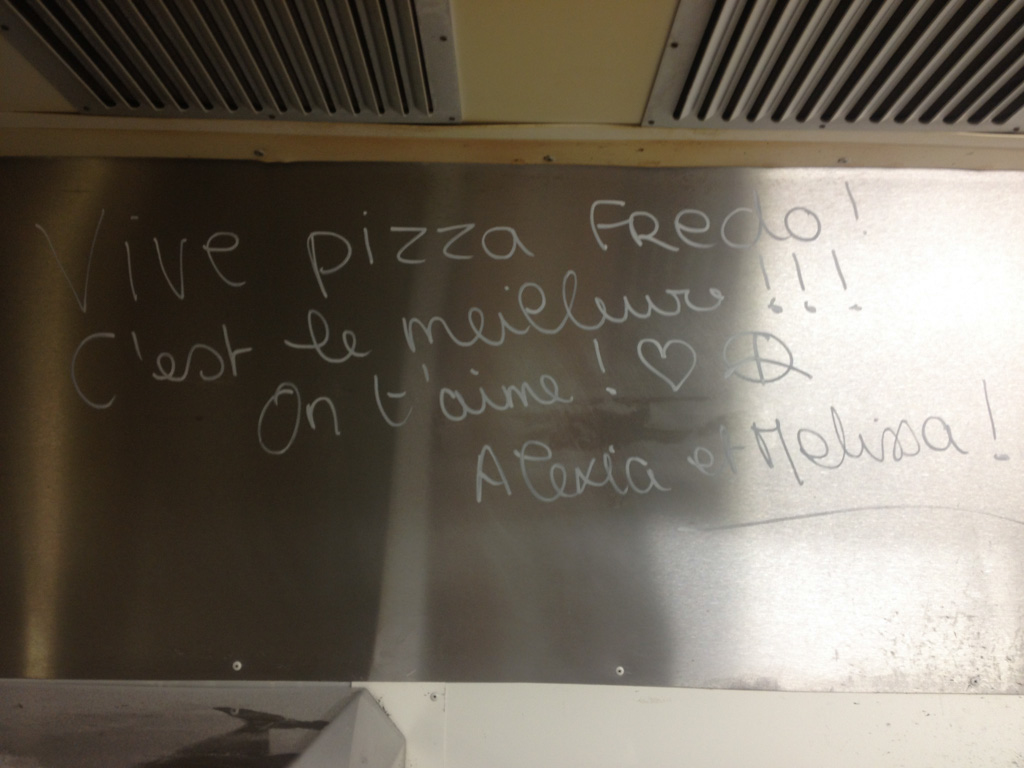 Vive pizza Fredo !
C'est le meilleure !!!
On t'aime ! ♡ ☮
Alexia et Melissa !